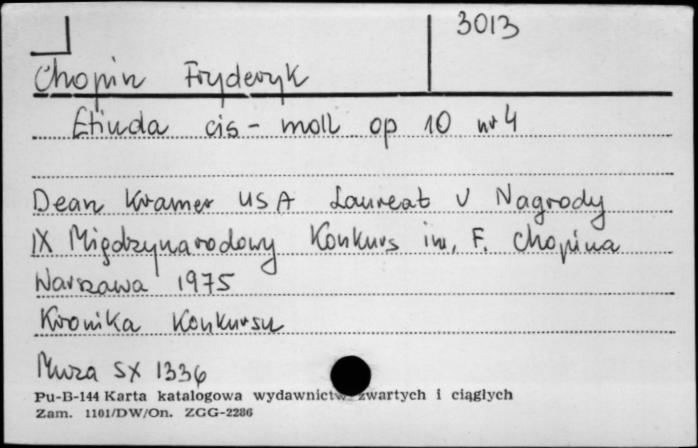 3013
Chopin Fryderyk
Etiuda cis-moll op 10 nr 4
Dean Kramer USA Laureat V Nagrody
IX Międzynarodowy Konkurs im. F. Chopina
Warszawa 1975
Kronika Konkursu
Muza SX 1336
Pu-B-144 Karta katalogowa wydawnictw zwartych i ciąglych
Zam. 1101/DW/On. ZGG-2286